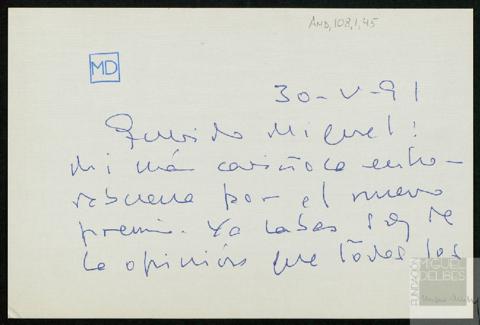 AMD,108,1,45
MD
30-V-91
Querido Miguel:
Mi más cariñosa enho-
rabuena por el nuevo
premio. Ya sabes soy de
la opinión que todos los
FUNDACIÓN
MIGUEL
DELIBES